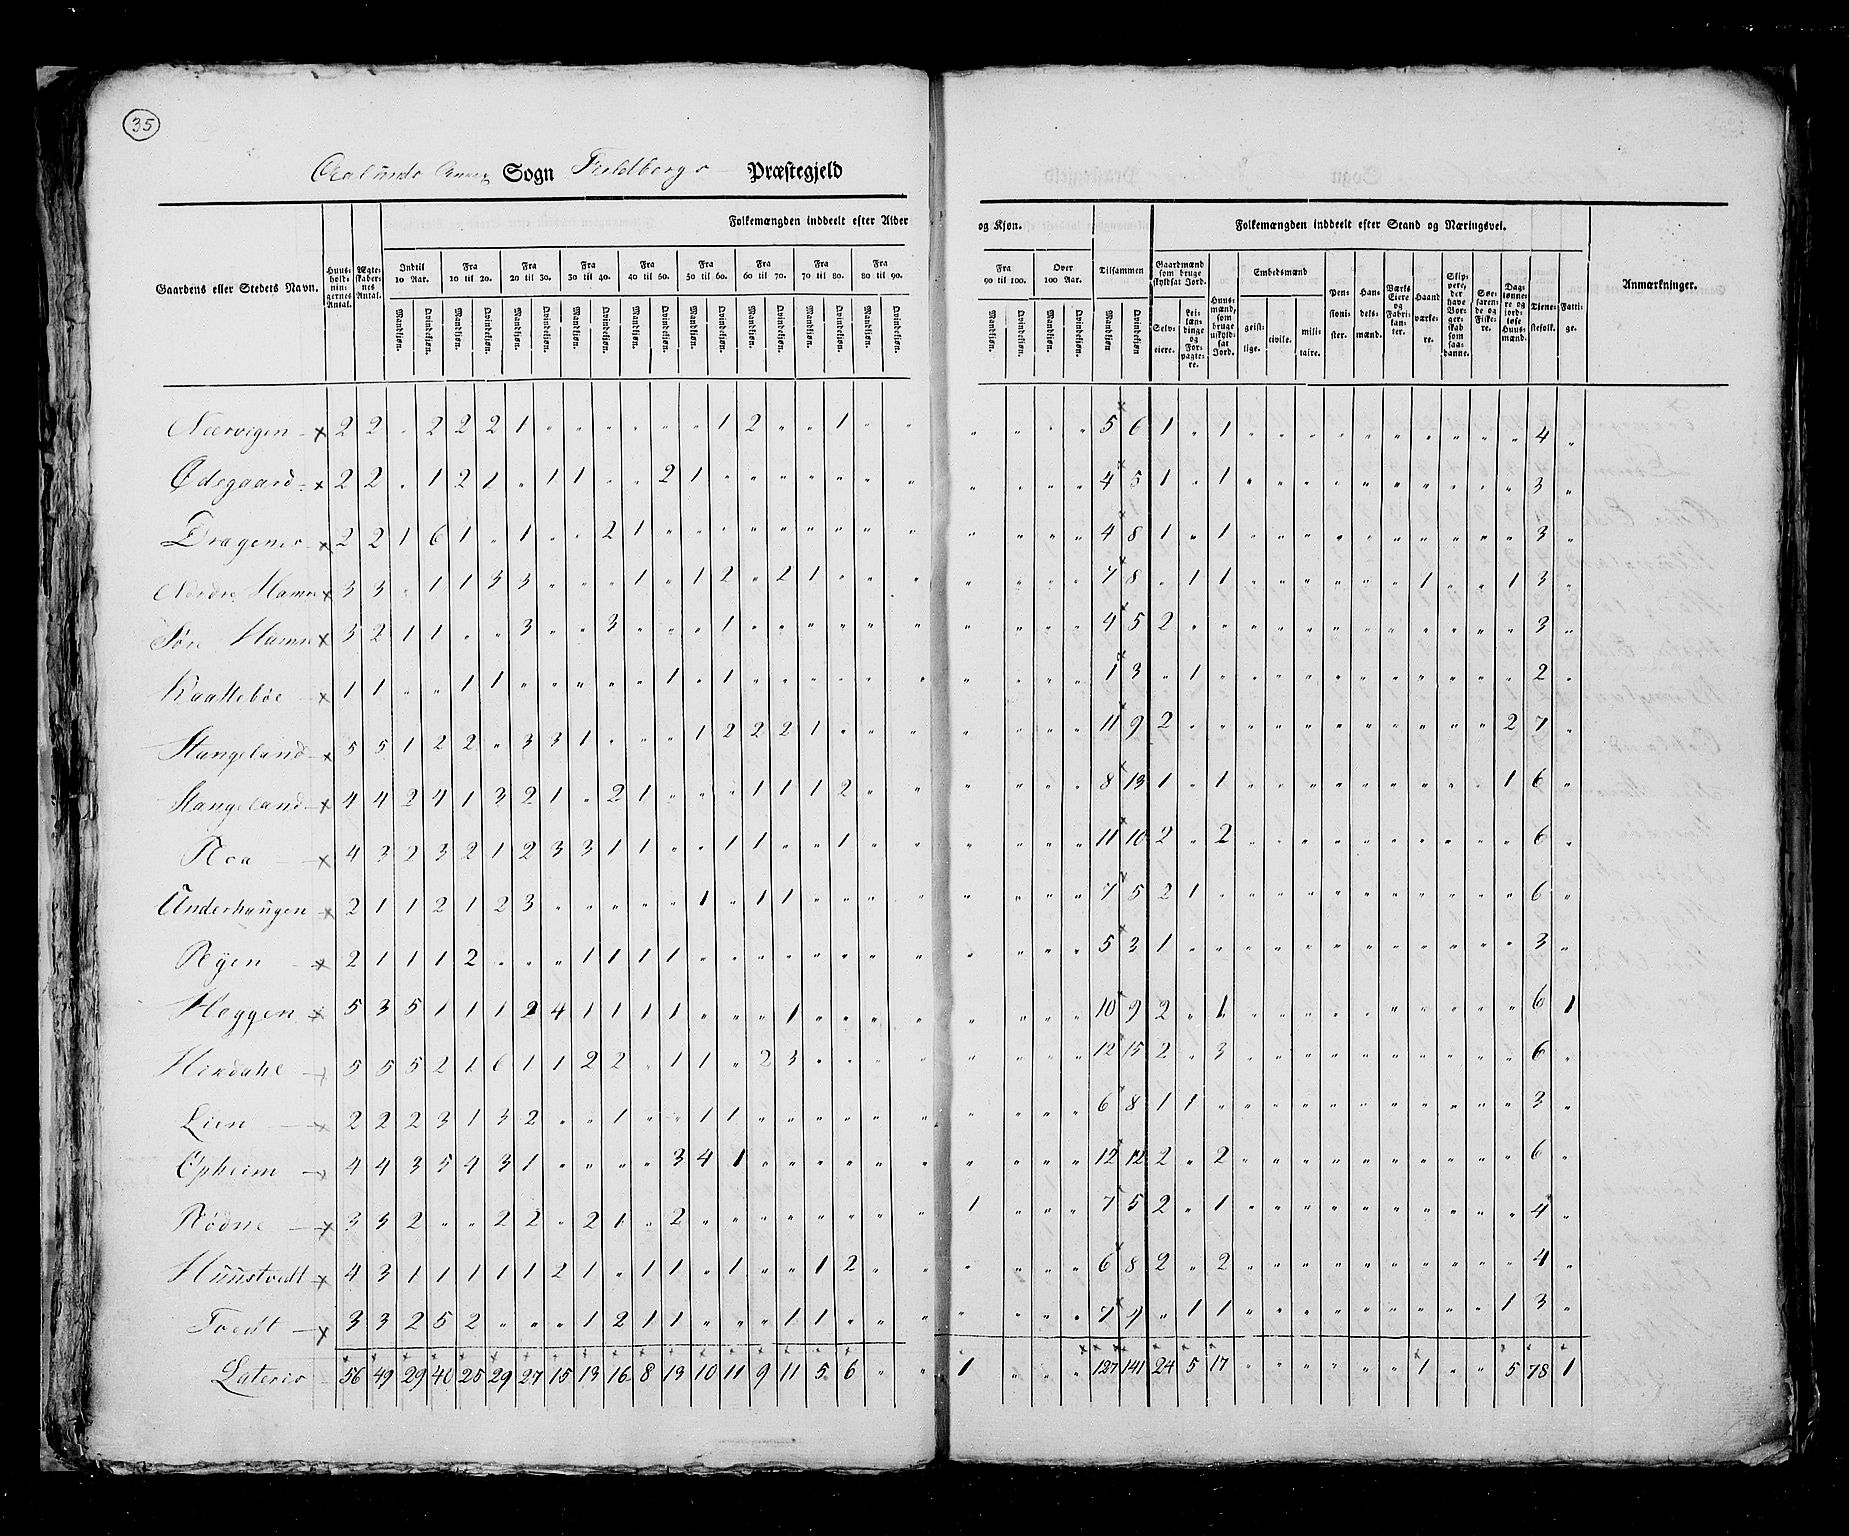 35
Sogn Præstegjeld
Gaardens eller Stedets Navn. Huusholdningernes Antal. Ægteskabernes Antal. Folkemængden inddeelt efter Alder og Kjøn. Tilsammen Folkemængden inddeelt efter Stand og Næringsvei. Anmærkninger.
Indtil 10 Aar. Fra 10 til 20. Fra 20 til 30. Fra 30 til 40. Fra 40 til 50. Fra 50 til 60. Fra 60 til 70. Fra 70 til 80. Fra 80 til 90. Fra 90 til 100. Over 100 Aar.
Mandkjøn. Qvindekjøn. Mandkjøn. Qvindekjøn. Mandkjøn. Qvindekjøn. Mandkjøn. Qvindekjøn. Mandkjøn. Qvindekjøn. Mandkjøn. Qvindekjøn. Mandkjøn. Qvindekjøn. Mandkjøn. Qvindekjøn. Mandkjøn. Qvindekjøn. Mandkjøn. Qvindekjøn. Mandkjøn. Qvindekjøn. Mandkjøn Qvindekjøn
Gaardmænd som bruge skyldsat Jord. Selveiere. Leilændinge og Forpagtere. Huusmænd, som bruge uskyldsat Jord. Embedsmænd geistlige. civile. militaire. Pensionister. Handelsmænd. Værks Eiere og Fabrikanter. Haandværkere. Skippere, der have Borgerskab som saadanne. Søefarende og Fiskere. Daglønnere og jordløse Huusmænd. Tienestefolk. Fattige.
Neervigen 2 2 " 2 2 2 1 " " " " " " 1 2 " " 1 " " " " " " 5 6 1 " 1 " " " " " " " " " " 4 "
Ødegaard 2 2 " 1 2 1 " 1 1 " " 2 1 " " " " " " " " " " " 4 5 1 " 1 " " " " " " " " " " 3 "
Dragenes 2 2 1 6 1 " 1 " " 2 1 " " " " " " " " " " " " " 4 8 1 " 1 " " " " " " " " " " 3 "
Nordre Hamre 3 3 " 1 1 3 3 " " " 1 " 1 2 " 2 1 " " " " " " " 7 8 " 1 1 " " " " " " 1 " " 1 3 "
Søre Hamre 3 2 1 1 " " 3 " " 3 " " " 1 " " " " " " " " " " 4 5 2 " " " " " " " " " " " " 3 "
Kaattebøe 1 1 " " 1 1 " " " " " 1 " 1 " " " " " " " " " " 1 3 " 1 " " " " " " " " " " " 2 "
Stangeland 5 5 1 2 2 " 3 3 1 " " " 1 2 2 2 1 " " " " " " " 11 9 2 " " " " " " " " " " " 2 7 "
Stangeland 4 4 2 4 1 3 2 1 " 2 1 " " " 1 1 1 2 " " " " " " 8 13 1 " 1 " " " " " " " " " 1 6 "
Roa 4 3 2 3 2 1 2 3 3 1 1 " " 1 1 " " 1 " " " " " " 11 10 2 " 2 " " " " " " " " " " 6 "
Underhaugen 2 1 1 2 1 2 3 " " " " " 1 " 1 1 " " " " " " " " 7 5 2 1 " " " " " " " " " " " 6 "
Ryen 2 1 1 1 2 " " " 1 1 1 1 " " " " " " " " " " " " 5 3 1 " " " " " " " " " " " " 3 "
Heggen 5 3 5 1 1 1 2 4 1 1 1 1 " " " 1 " " " " " " " " 10 9 2 " 1 " " " " " " " " " " 6 1
Hindahl 5 5 5 2 1 6 1 1 2 2 " 1 1 " 2 3 " " " " " " " " 12 15 2 " 3 " " " " " " " " " " 6 "
Lien 2 2 2 3 1 3 2 " " 1 " " 1 1 " " " " " " " " " " 6 8 1 1 " " " " " " " " " " " 3 "
Opheim 4 4 3 5 4 3 1 " " " " 3 4 1 " " " " " " " " " " 12 12 2 " 2 " " " " " " " " " " 6 "
Rødne 3 3 2 " " 2 2 " 2 1 " 2 " " " " " " " " 1 " " " 7 5 2 " 1 " " " " " " " " " " 4 "
Huustvedt 4 3 1 1 1 1 1 2 1 " 1 1 " 1 " " 1 2 " " " " " " 6 8 2 " 2 " " " " " " " " " " 4 "
Tvedt 3 3 2 5 2 " " " 1 2 1 1 " " " 1 1 " " " " " " " 7 9 " 1 1 " " " " " " " " " 1 3 "
Lateris 56 49 29 40 25 29 27 15 13 16 8 13 10 11 9 11 5 6 " " 1 " " " 127 141 24 5 17 " " " " " " 1 " " 5 78 1